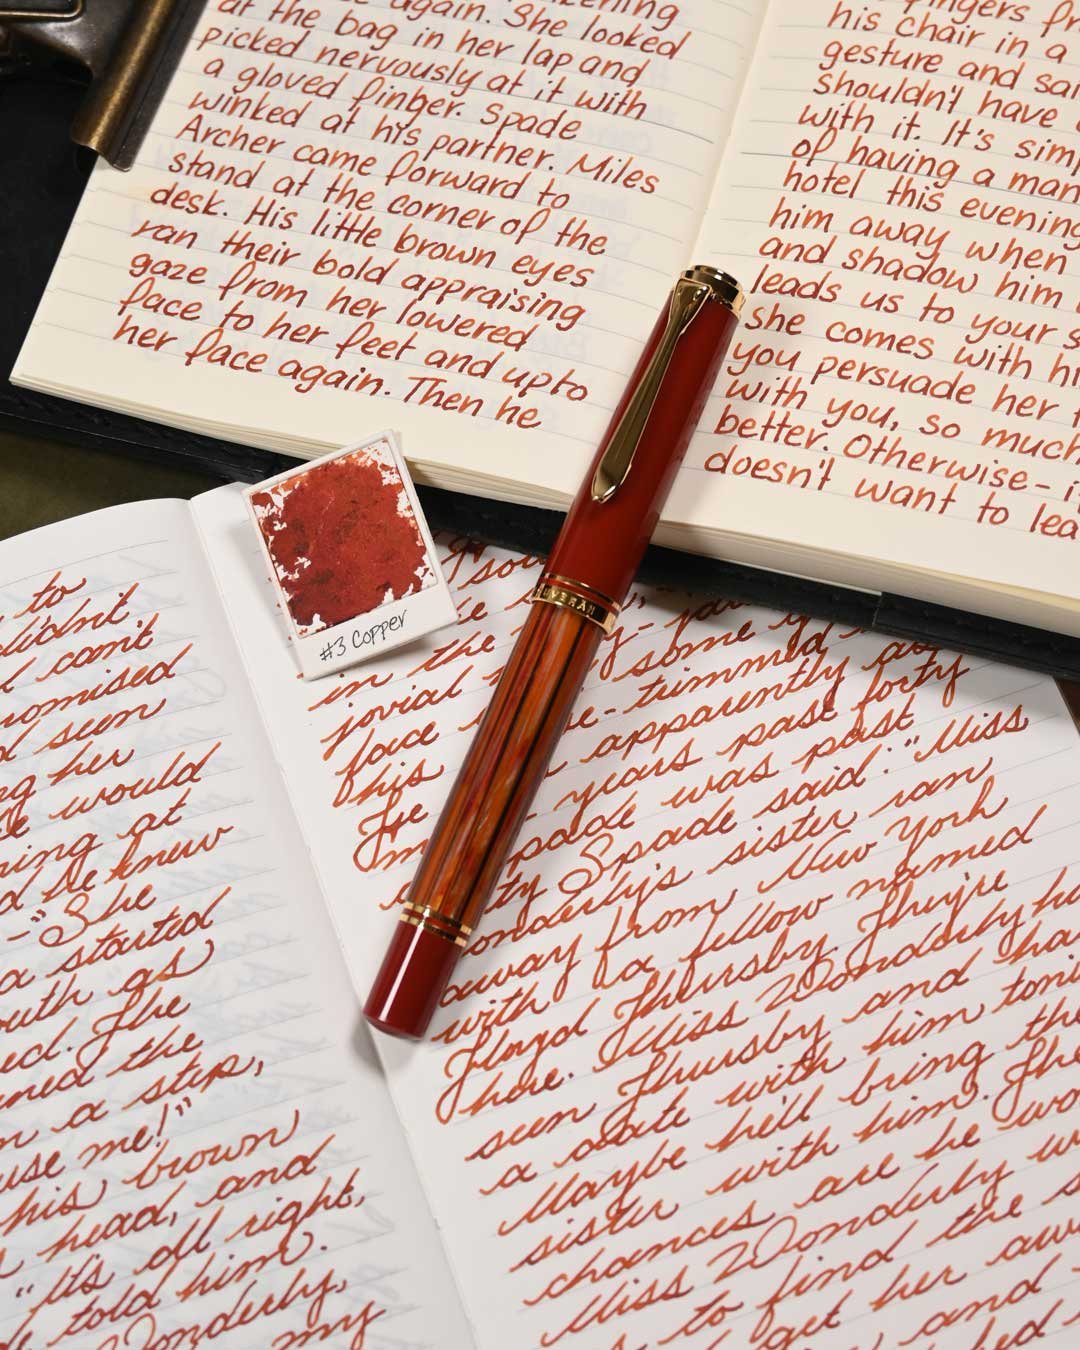 again. She looked
at the bag in her lap and
picked nervously at it with
a gloved finger. Spade
winked at his partner. Miles
Archer came forward to
stand at the corner of the
desk. His little brown eyes
ran their bold appraising
gaze from her lowered
face to her feet and up to
her face again. Then he
fingers
his chair in a
gesture and
shouldn't have
with it. It's
of having a man
hotel this evening
him away when
and shadow him
leads us to your
she comes with
you persuade her
with you, so much
better. Otherwise-
doesn't want to
#3 Copper
to
didn't
can't
seen
her
would
at
he knew
-"She
a started
as
The
the
a step,
me!"
his brown
head, and
"It's all right,
told him.
Wonderly,
my
in the
jovial some
face -trimmed
his apparently
He years past forty
Spade was past
Spade said: "Miss
sister ran
away from New York
with a fellow named
Floyd Thursby. They're
here. Miss Wonderly
seen Thursby and
a date with him
Maybe he'll bring the
sister with him. The
chances are he
Miss Wonderly
to find the
get her
and